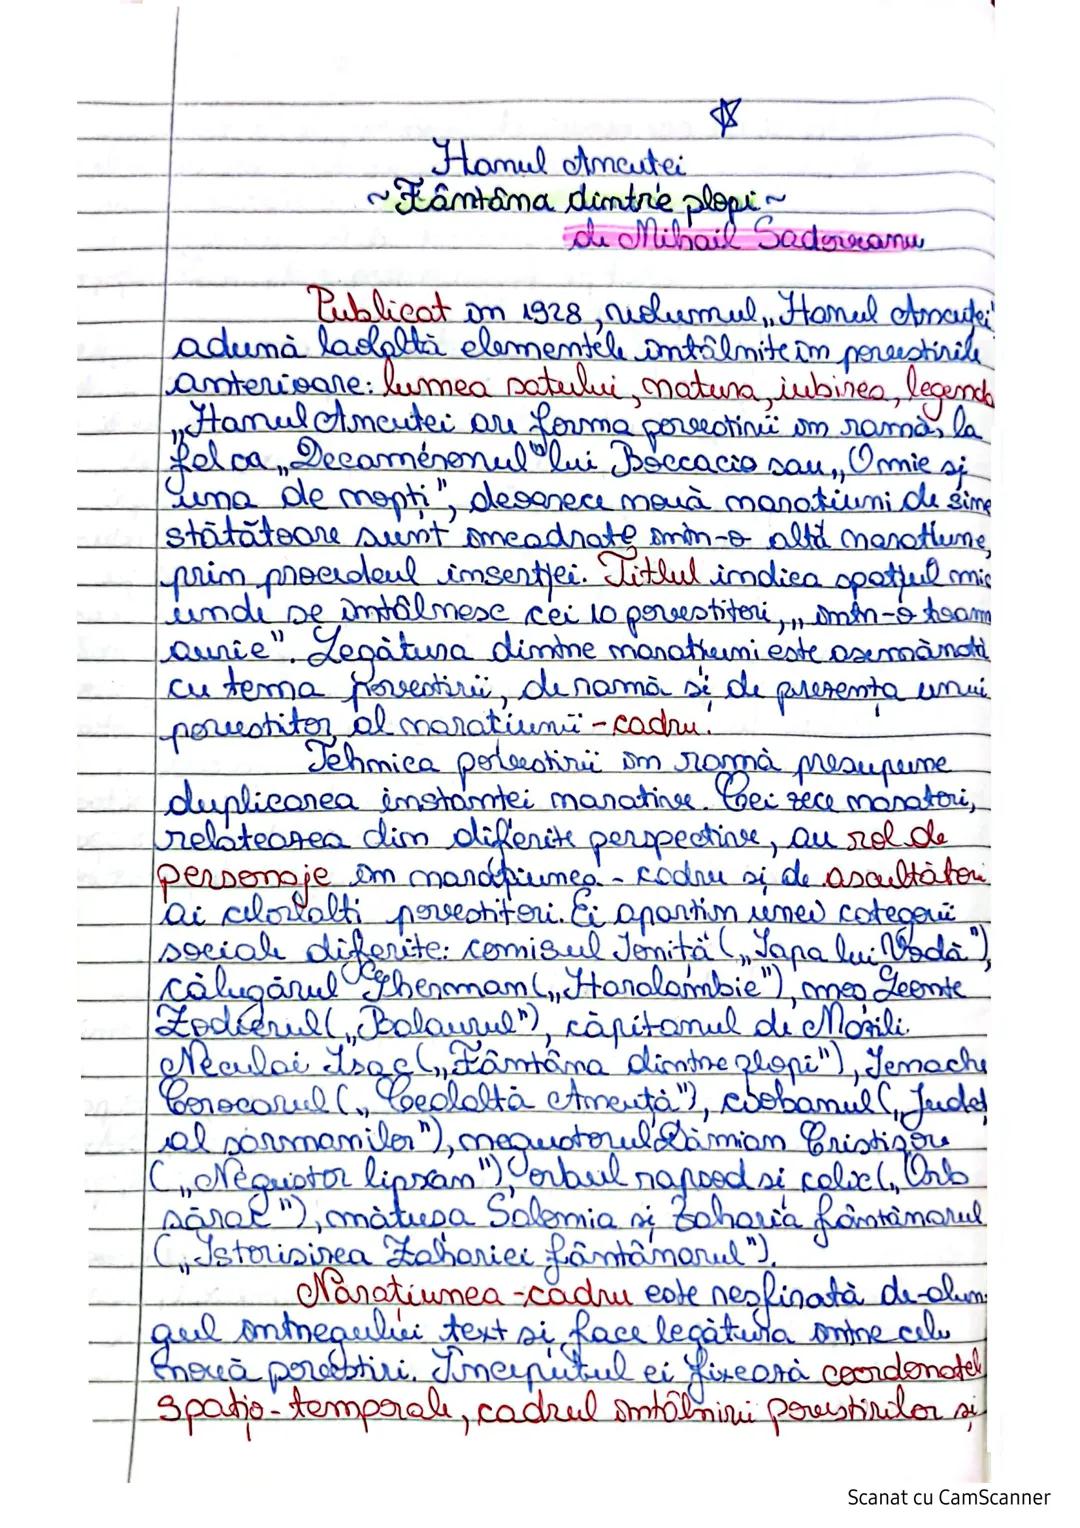 Hanul Ancuței
~Fântâna dintre plopi~
de Mihail Sadoveanu
Publicat în 1928, volumul „Hanul Ancuței"
adună laolaltă elementele întâlnite în povestirile
anterioare: lumea satului, natura, iubirea, legenda
„Hanul Ancuței are forma povestirii în ramă, la
fel ca „Decameronul" lui Boccacio sau „O mie și
una de nopți", deoarece nouă narațiuni de sine
stătătoare sunt încadrate într-o altă narațiune,
prin procedeul inserției. Titlul indica spațiul mic
unde se întâlnesc cei 10 povestitori, „într-o toamn
aurie". Legătura dintre narațiuni este asemănată
cu tema povestirii, de ramă și de prezența unui
povestitor al narațiunii-cadru.
Tehnica povestirii în ramă presupune
duplicarea instanței narative. Cei zece naratori,
relatearea din diferite perspective, au rol de
personaje în narațiunea-cadru și de ascultători
ai celorlalți povestitori. Ei aparțin unei categorii
sociale diferite: comisul Ioniță („Iapa lui Vodă"),
călugărul Gherman („Haralambie"), moș Leonte
Zodierul („Balaurul"), căpitanul de Mazili
Neculai Isac („Fântâna dintre plopi"), Ienache
Corocarul („Cealaltă Ancuță"), ciobanul („Județ
al sărmanilor"), negustorul Dămian Cristișor
(„Negustor lipscan"), orbul rapsod și calic („Orb
sărac"), mătușa Salomia și Zaharia fântânarul
(„Istorisirea Zahariei fântânarul").
Narațiunea-cadru este nesfirată de-alun-
gul întregului text și face legătura între cele
nouă povestiri. Începutul ei fixează coordonatel
spațio-temporale, cadrul întâlnirii povestirilor și
Scanat cu CamScanner